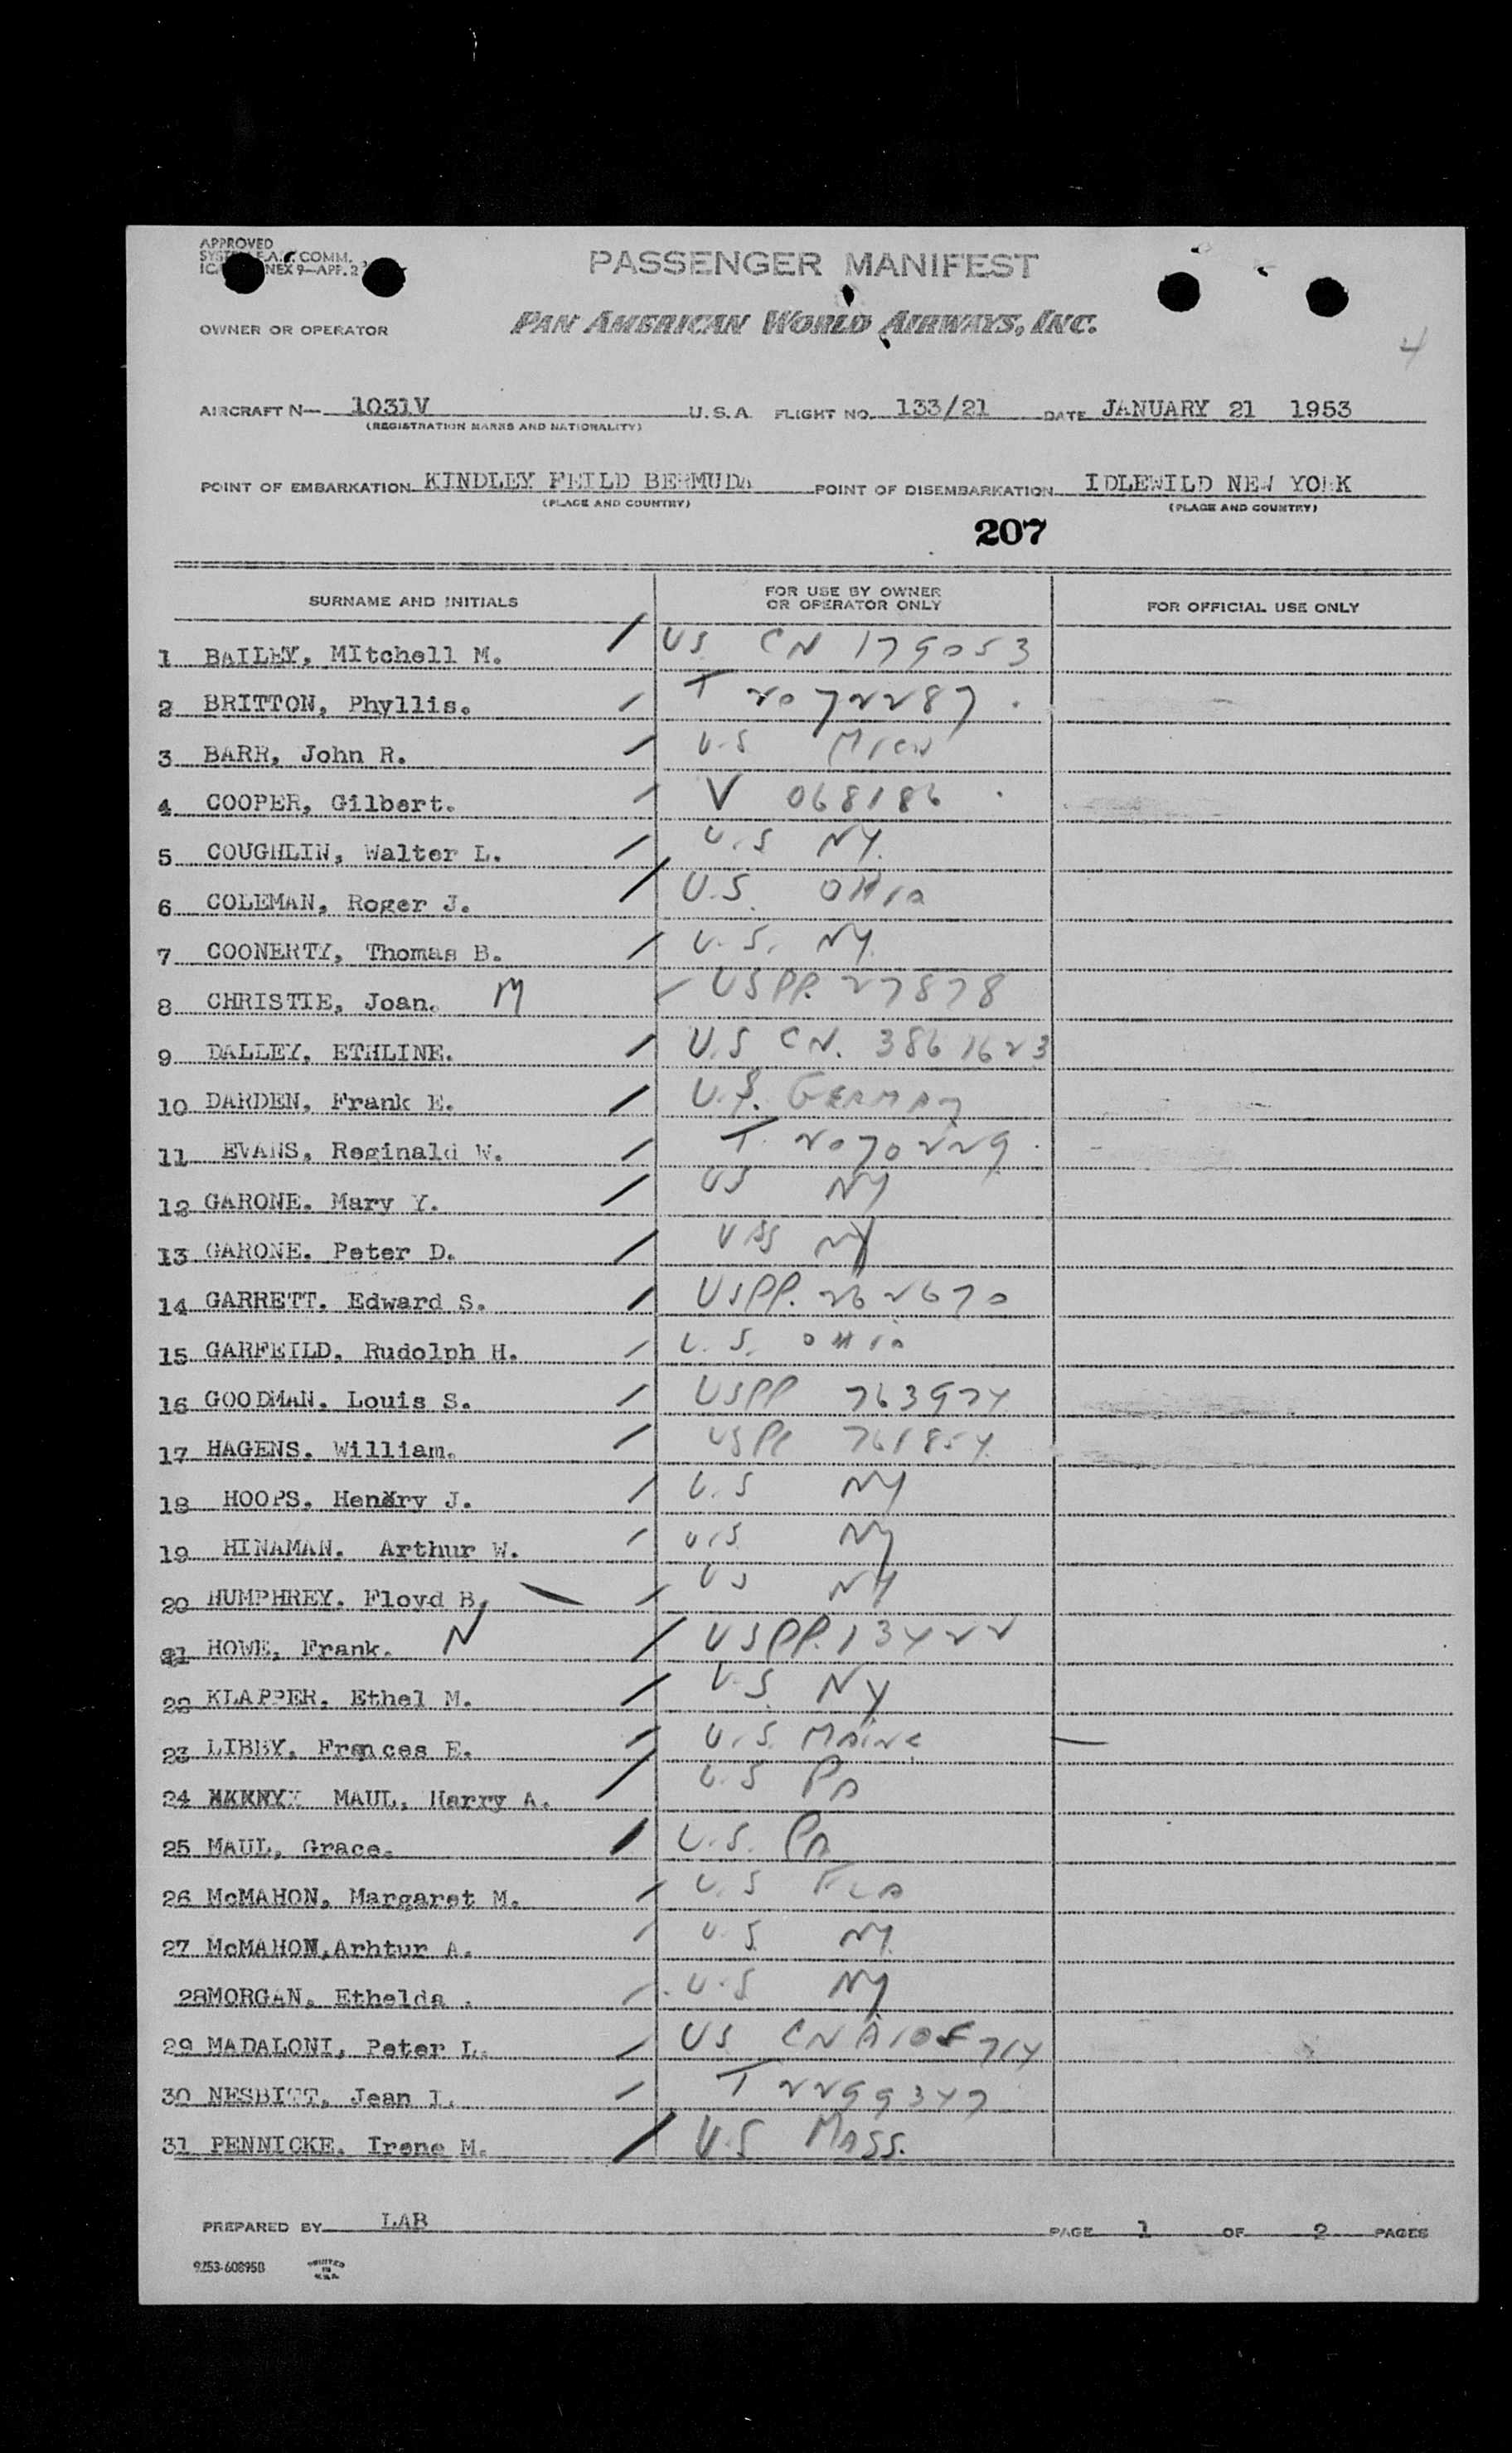 APPROVED
COMM.
NEX 9—APP. 2
PASSENGER MANIFEST
OWNER OR OPERATOR PAN AMERICAN WORLD AIRWAYS, INC.
4
AIRCRAFT N— 1031V U.S.A. FLIGHT NO. 133/21 DATE JANUARY 21 1953
(REGISTRATION MARKS AND NATIONALITY)
POINT OF EMBARKATION KINDLEY FEILD BERMUDA POINT OF DISEMBARKATION IDLEWILD NEW YORK
(PLACE AND COUNTRY) (PLACE AND COUNTRY)
207
SURNAME AND INITIALS FOR USE BY OWNER OR OPERATOR ONLY FOR OFFICIAL USE ONLY
1 BAILEY, MItchell M. / US CN 179053
2 BRITTON, Phyllis. / T 2072287.
3 BARR, John R. / U.S MICH
4 COOPER, Gilbert. / V 068186 .
5 COUGHLIN, Walter L. / U.S NY.
6 COLEMAN, Roger J. / U.S. OHIO
7 COONERTY, Thomas B. / U.S. NY.
8 CHRISTIE, Joan. M / USPP. 27878
9 DALLEY, ETHLINE. / U.S CN. 3861623
10 DARDEN, Frank E. / U.S. GERMANY
11 EVANS, Reginald W. / T. 2070229.
12 GARONE. Mary Y. / US NY
13 GARONE. Peter D. / NY
14 GARRETT. Edward S. / USPP. 262670
15 GARFEILD. Rudolph H. / U.S. OHIO
16 GOODMAN. Louis S. / USPP 763974
17 HAGENS. William. / USPP 761854
18 HOOPS. Hendry J. / U.S NY
19 HINAMAN. Arthur W. / U.S. NY
20 HUMPHREY. Floyd B. / US NY
21 HOWE, Frank. N / USPP. 13422
22 KLAPPER, Ethel M. / U.S. NY
23 LIBBY, Frances E. / U.S. MAINE
24 MAUL, Harry A. / U.S PA
25 MAUL, Grace. / U.S. PA
26 McMAHON, Margaret M. / U.S FLA
27 McMAHON,Arhtur A. / U.S. NY.
28MORGAN, Ethelda . / U.S NY
29 MADALONI, Peter L. / US CN A105714
30 NESBITT, Jean I. / T 2299347
31 PENNICKE. Irene M. / U.S MASS.
PREPARED BY LAB PAGE 1 OF 2 PAGES
9253-60895B PRINTED IN U.S.A.